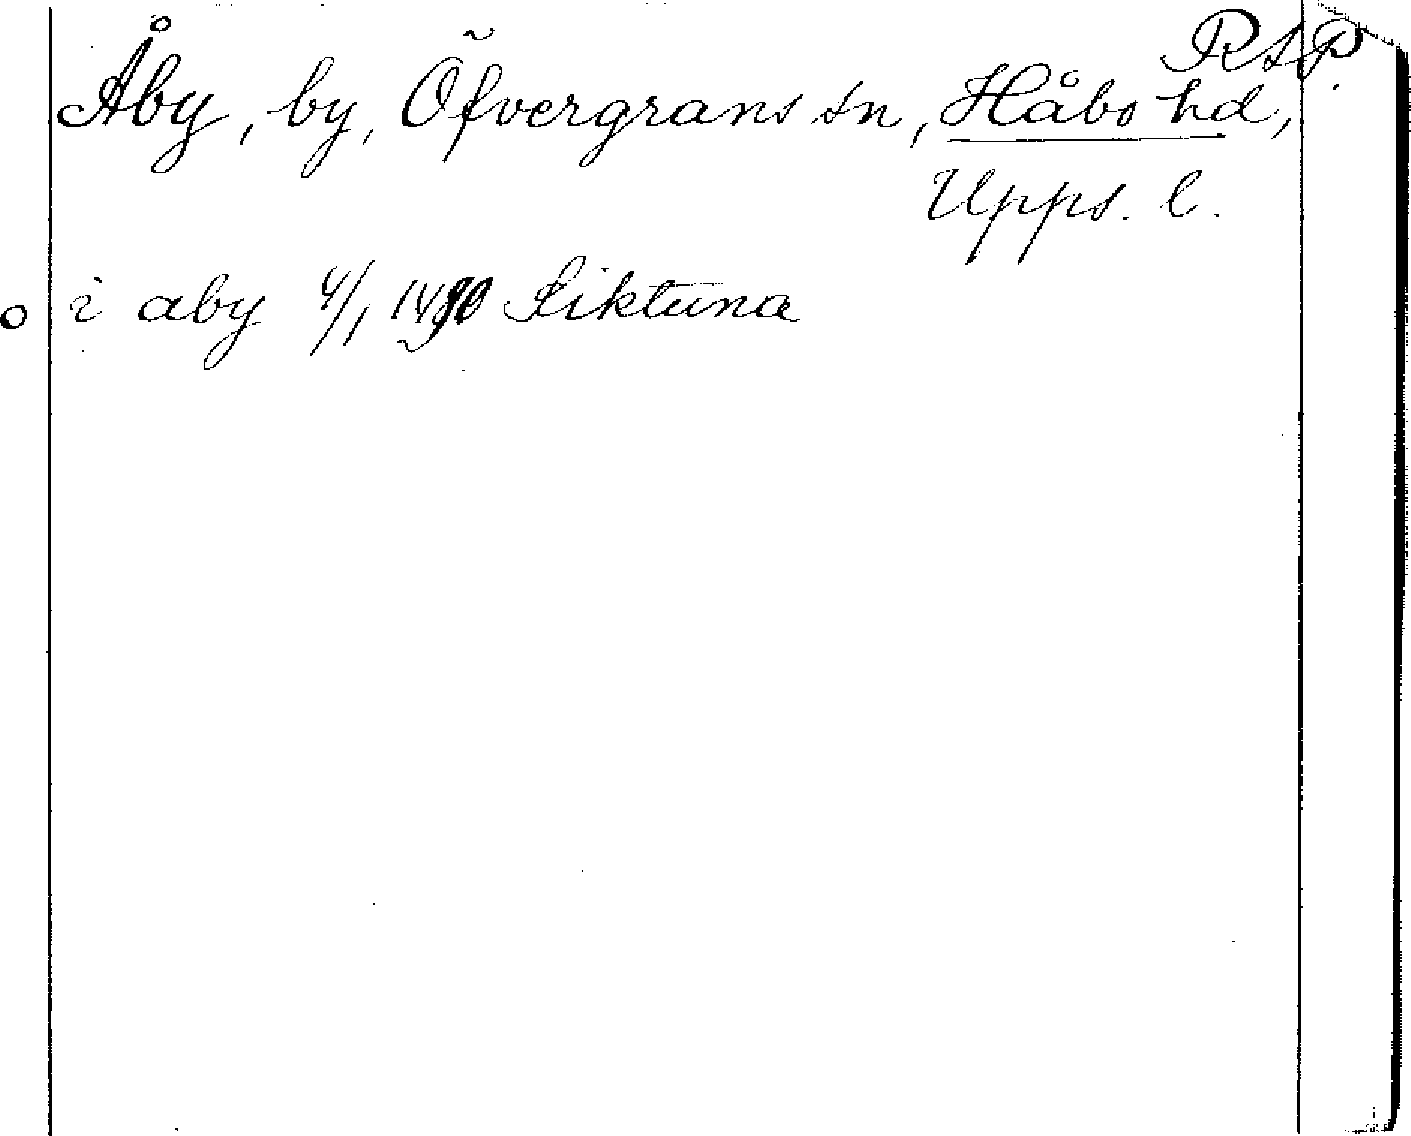 RAP.
Åby, by, Öfvergrans sn, Håbo hd,
Upps. l.
o i aby 4/1 Siktuna